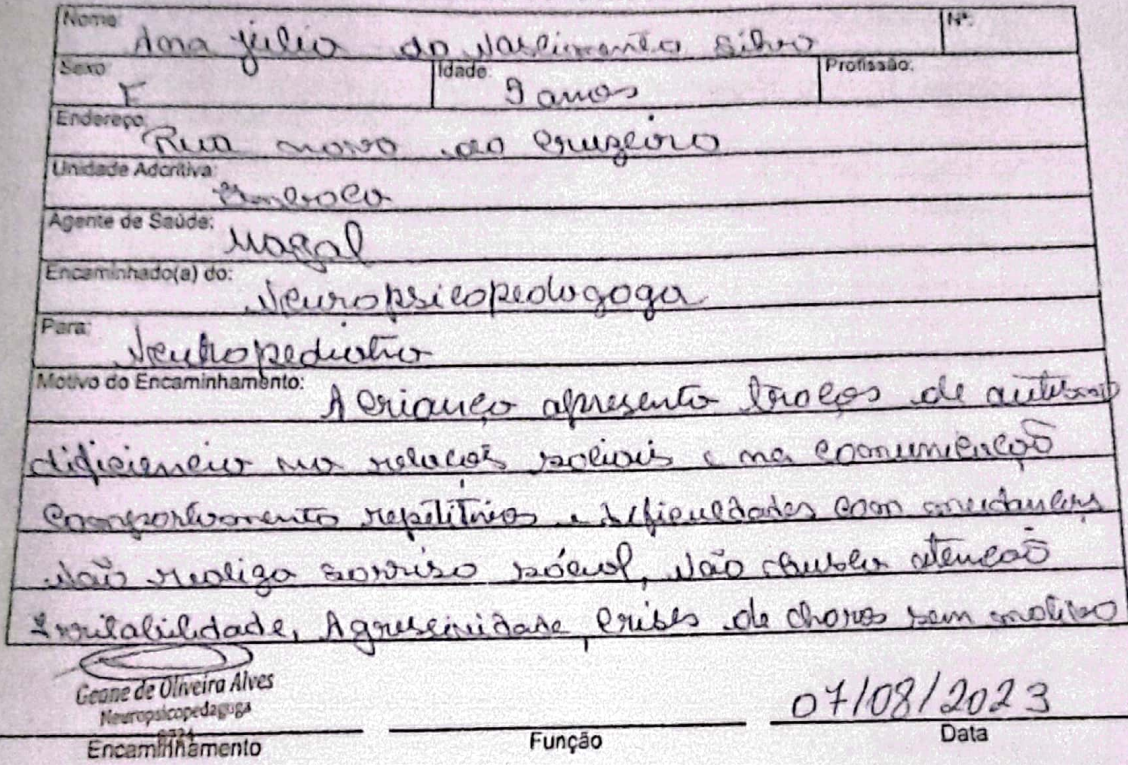 Nome: Ana Júlia do Nascimento Silva Nº:
Sexo: F Idade: 9 anos Profissão:
Endereço: Rua nova do Cruzeiro
Unidade Adcritiva:
Agente de Saúde: Magal
Encaminhado(a) do: Neuropsicopedagoga
Para: Neuropediatra
Motivo do Encaminhamento: A criança apresenta traços de autismo
dificiencia na relacoẽs sociais e na comunicação
comportamento repititivos e dificuldades com mudanças
Não realiza sorriso social, Não atenção
Irritabilidade, Agressividade, Crises de choros sem motivo
Geane de Oliveira Alves
Neuropsicopedagoga
07/08/2023
Encaminhamento Função Data